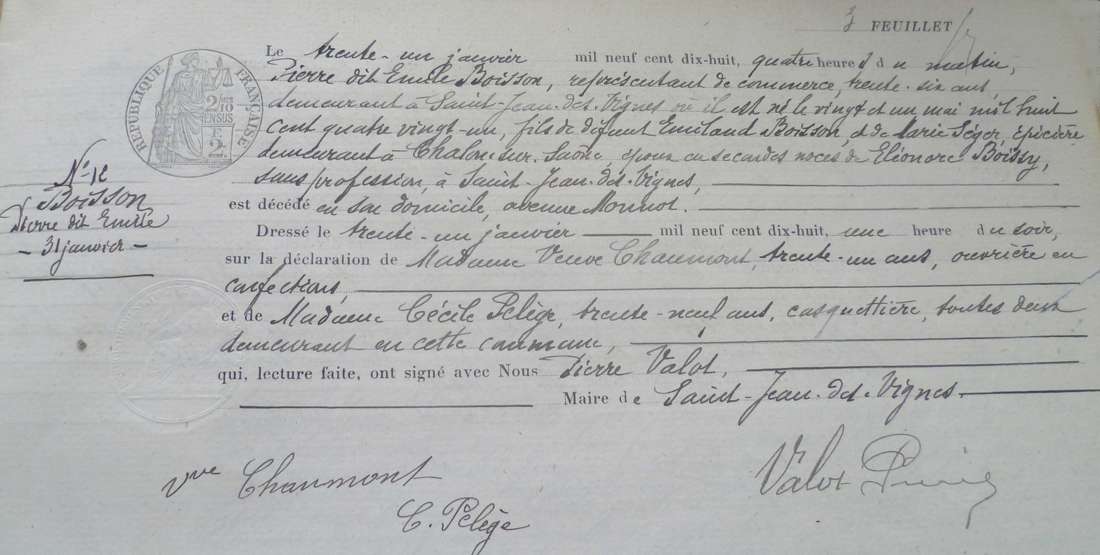 3 FEUILLET
RÉPUBLIQUE FRANÇAISE
2/10 EN SUS
Le trente-un janvier mil neuf cent dix-huit, quatre heures du matin,
Pierre dit Emile Boisson, représentant de commerce, trente-six ans
demeurant à Saint-Jean-des-Vignes où il est né le vingt et un mai mil huit
cent quatre vingt-un, fils de défunt Emiland Boisson, et de Marie Léger, épicière
demeurant à Chalon-sur-Saône, époux en secondes noces de Eléonore Boissy,
sans profession, à Saint-Jean-des-Vignes,
est décédé en son domicile, avenue Monnot.
N° 12
Boisson
Pierre dit Emile
- 31 janvier -
Dressé le trente-un janvier mil neuf cent dix-huit, une heure du soir,
sur la déclaration de Madame Veuve Chaumont, trente-un ans, ouvrière en
confections,
et de Madame Cécile Pelège, trente-neuf ans, casquettière, toutes deux
demeurant en cette commune,
qui, lecture faite, ont signé avec Nous Pierre Valot,
Maire de Saint-Jean-des-Vignes.
Vve Chaumont
C. Pelège
Valot Pierre